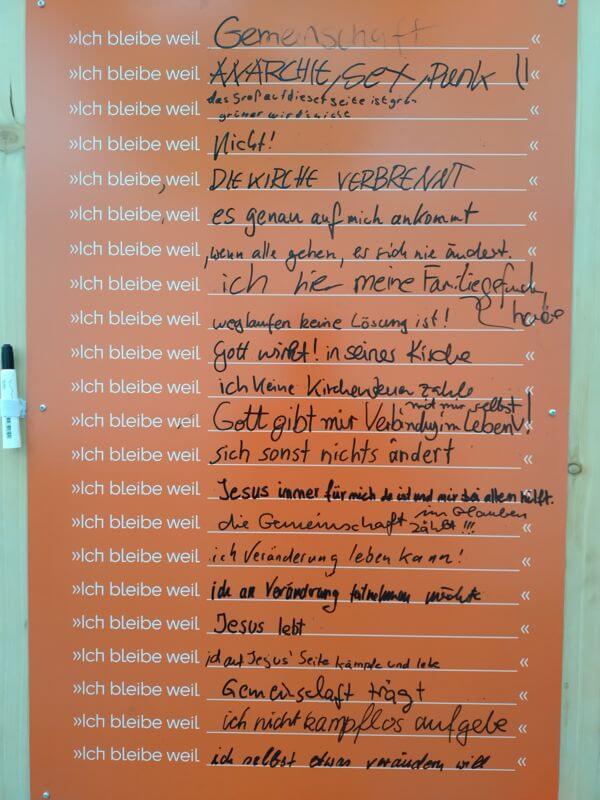 »Ich bleibe weil Gemeinschaft «
»Ich bleibe weil ANARCHIE, Sex, Punk !! «
»Ich bleibe weil das Gras auf dieser Seite ist grün «
grüner wird's nicht
»Ich bleibe weil Nicht! «
»Ich bleibe, weil DIE KIRCHE VERBRENNT «
»Ich bleibe, weil es genau auf mich ankommt «
»Ich bleibe weil, wenn alle gehen, es sich nie ändert. «
»Ich bleibe weil ich hier meine Familie gefunden habe «
»Ich bleibe weil weglaufen keine Lösung ist! «
»Ich bleibe weil Gott wirkt! in seiner Kirche «
»Ich bleibe weil ich keine Kirchensteuer zahle «
»Ich bleibe weil Gott gibt mir Verbindung im Leben mit mir selbst! «
»Ich bleibe weil sich sonst nichts ändert «
»Ich bleibe weil Jesus immer für mich da ist und mir bei allem hilft. «
»Ich bleibe weil die Gemeinschaft im Glauben zählt!!! «
»Ich bleibe weil ich Veränderung leben kann! «
»Ich bleibe weil ich an Veränderung teilnehmen möchte «
»Ich bleibe weil Jesus lebt «
»Ich bleibe weil ich auf Jesus' Seite kämpfe und lebe «
»Ich bleibe weil Gemeinschaft trägt «
»Ich bleibe weil ich nicht kampflos aufgebe «
»Ich bleibe weil ich selbst etwas verändern will «